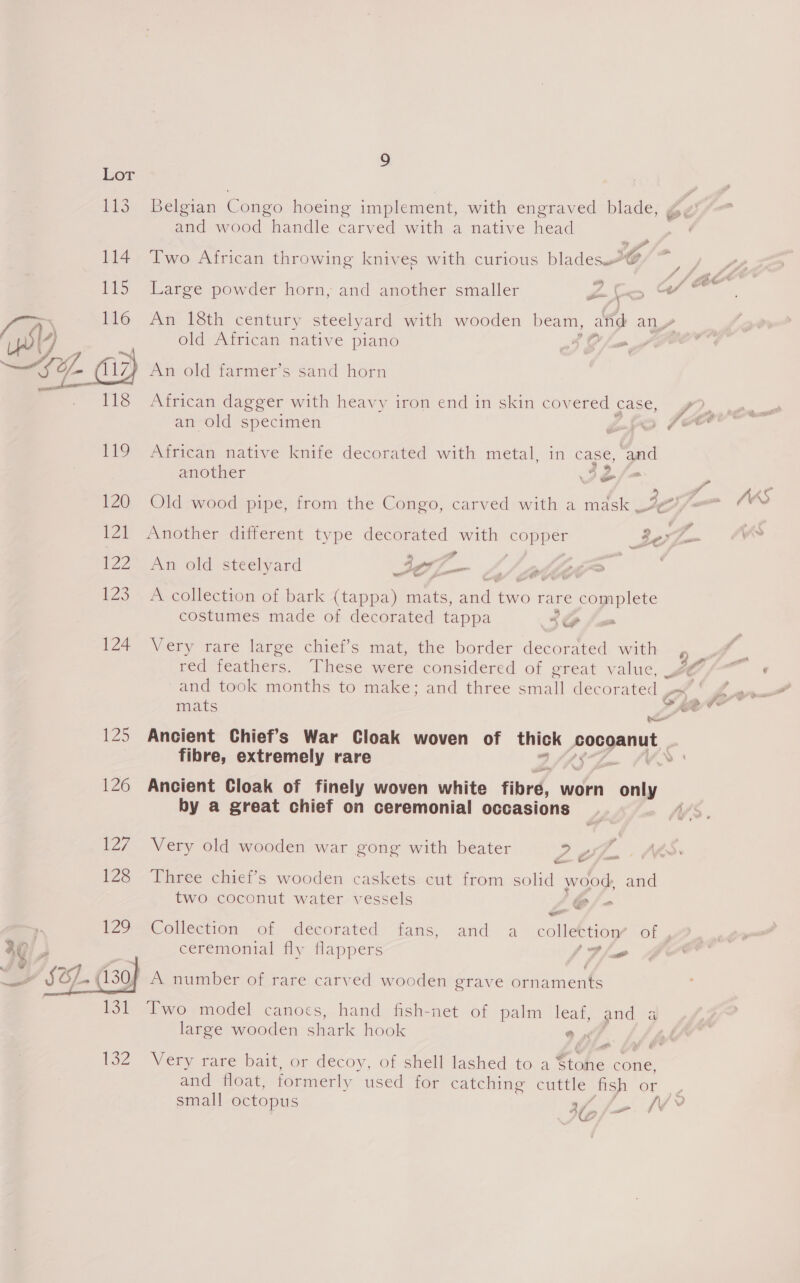 9
Lot
113 Belgian Congo hoeing implement, with engraved blade,
and wood handle carved with a native head
114 Two African throwing knives with curious blades
115 Large powder horn, and another smaller
116 An 18th century steelyard with wooden beam, and an
old African native piano
117 An old farmer's sand horn
118 African dagger with heavy iron end in skin covered case,
an old specimen
119 African native knife decorated with metal, in case, and
another 32/-
120 Old wood pipe, from the Congo, carved with a mask
121 Another different type decorated with copper
122 An old steelyard
123 A collection of bark (tappa) mats, and two rare complete
costumes made of decorated tappa
124 Very rare large chief's mat, the border decorated with
red feathers. These were considered of great value,
and took months to make; and three small decorated
mats
125 Ancient Chief's War Cloak woven of thick cocoanut
fibre, extremely rare
126 Ancient Cloak of finely woven white fibre, worn only
by a great chief on ceremonial occasions
127 Very old wooden war gong with beater
128 Three chief's wooden caskets cut from solid wood, and
two coconut water vessels
129 Collection of decorated fans, and a collection of
ceremonial fly flappers
130 A number of rare carved wooden grave ornaments
131 Two model canoes, hand fish-net of palm leaf, and a
large wooden shark hook
132 Very rare bait, or decoy, of shell lashed to a stone cone,
and float, formerly used for catching cuttle fish or
small octopus